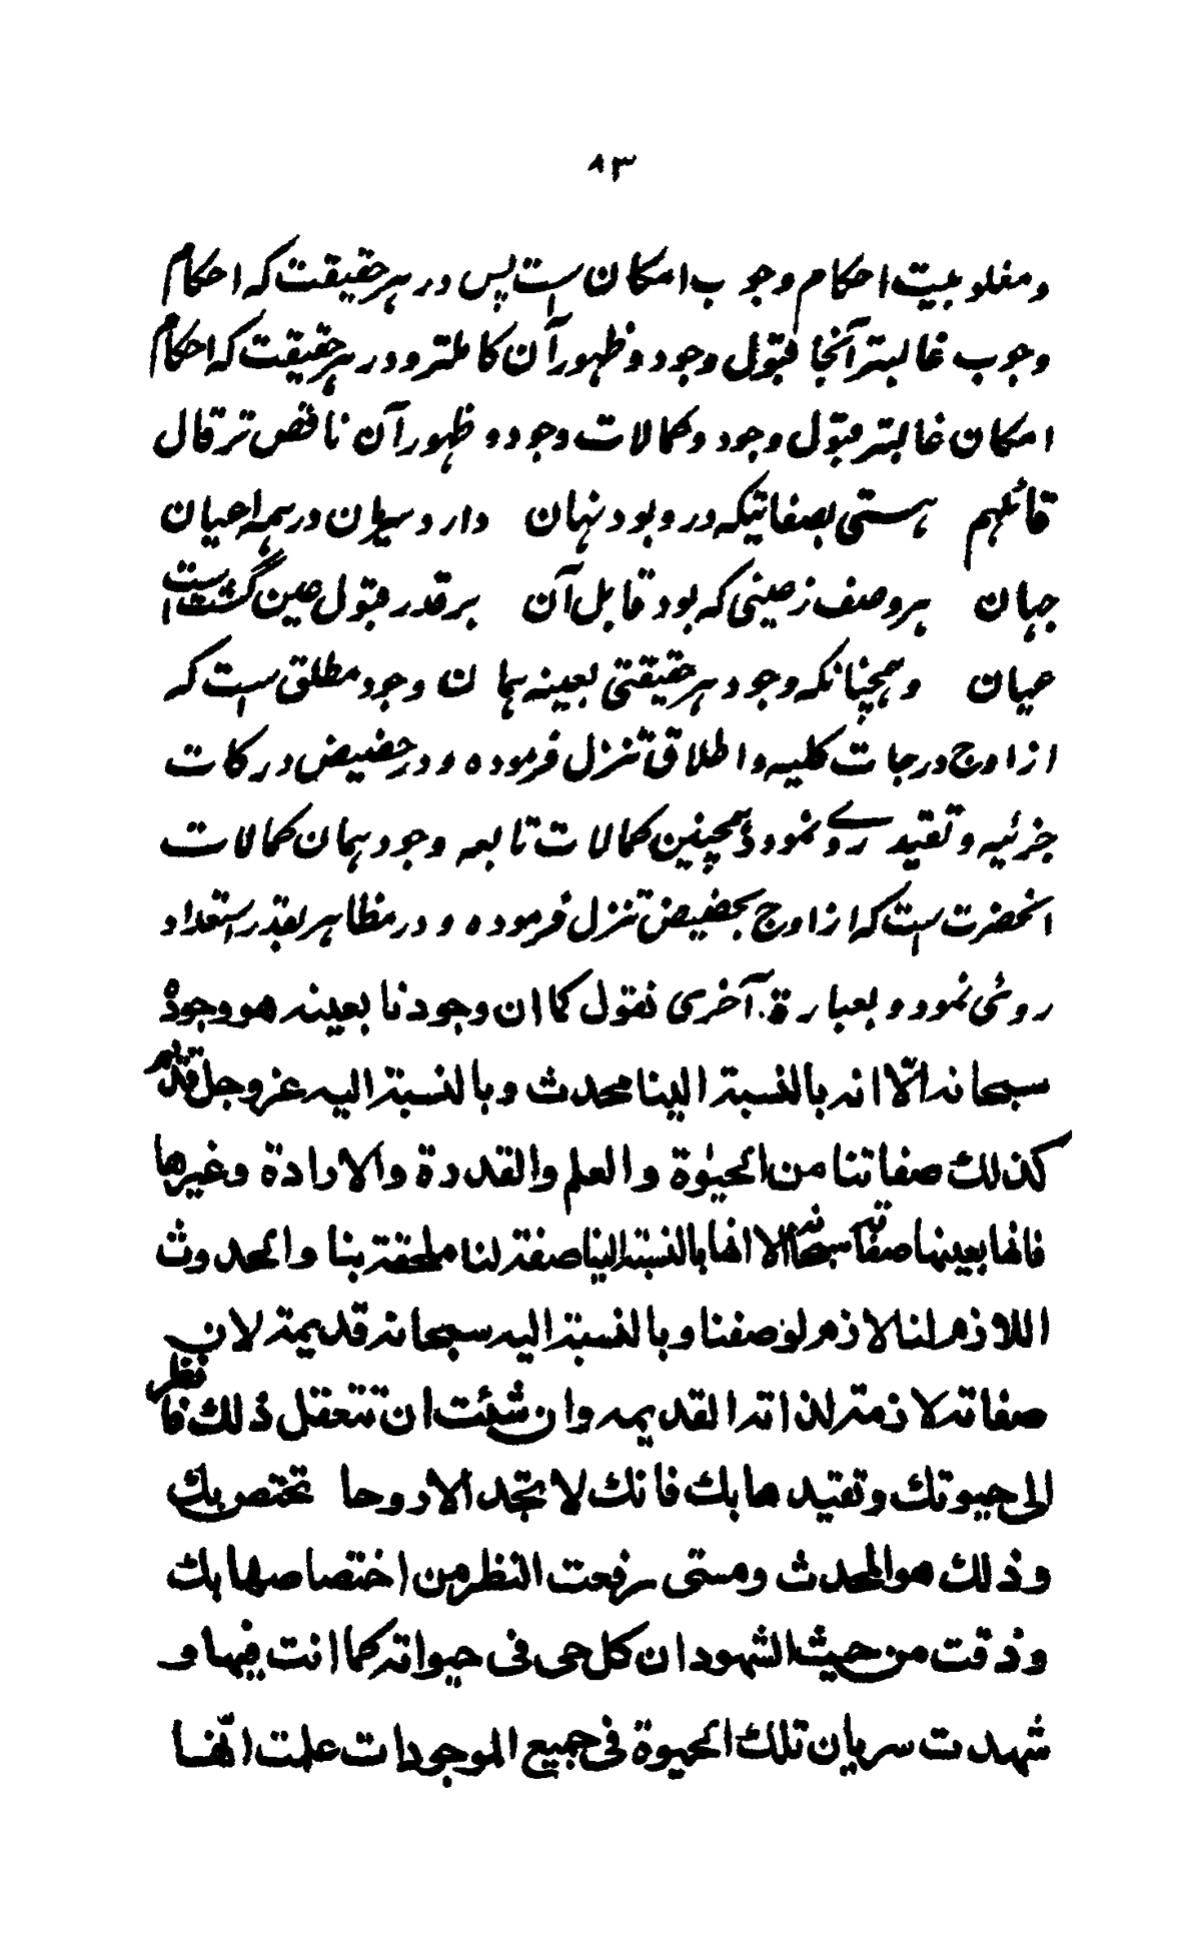 ۸۳
ومغلوبیت احکام وجوب امکان ست پس در هر حقیقت که احکام
وجوب غالبتر آنجا قبول وجود و ظهور آن کاملتر و در هر حقیقت که احکام
امکان غالبتر قبول وجود وکمالات وجود و ظهور آن ناقص تر قال
قائلهم هستی بصفاتیکه درو بود نهان دارد سریان در همه اعیان
جهان هر وصف زعینی که بود قابل آن بر قدر قبول عین گشتست
عیان و همچنانکه وجود هر حقیقتی بعینه همان وجود مطلق ست که
از اوج درجات کلیه و اطلاق تنزل فرموده و در حضیض درکات
جزئیه و تقید روے نموده همچنین کمالات تابعه وجود همان کمالات
آنحضرت ست که از اوج بحضیض تنزل فرموده و در مظاهر بقدر استعداد
روئی نمود و بعبارة آخری نقول کما ان وجودنا بعینه هو وجوده
سبحانه الّا انه بالنسبة الینا محدث و بالنسبة الیه عز و جل قدیم
کذلك صفاتنا من الحیٰوة والعلم والقدرة والارادة وغیرها
فانها بعینها صفاته سبحانه الا انها بالنسبة الینا صفة لنا ملحقة بنا والحدوث
اللازم لنا لازم لوصفنا وبالنسبة الیه سبحانه قدیمة لان
صفاته لازمة لذاته القدیمه وان شئت ان تتعقل ذلك فانظر
الی حیوتك وتقیدها بك فانك لا تجد الا روحا تختص بك
وذلك هو المحدث ومتی رفعت النظر من اختصاصها بك
وذقت من حیث الشهود ان کل حی فی حیواته کما انت فیها و
شهدت سریان تلك الحیوة فی جمیع الموجودات علمت انّها